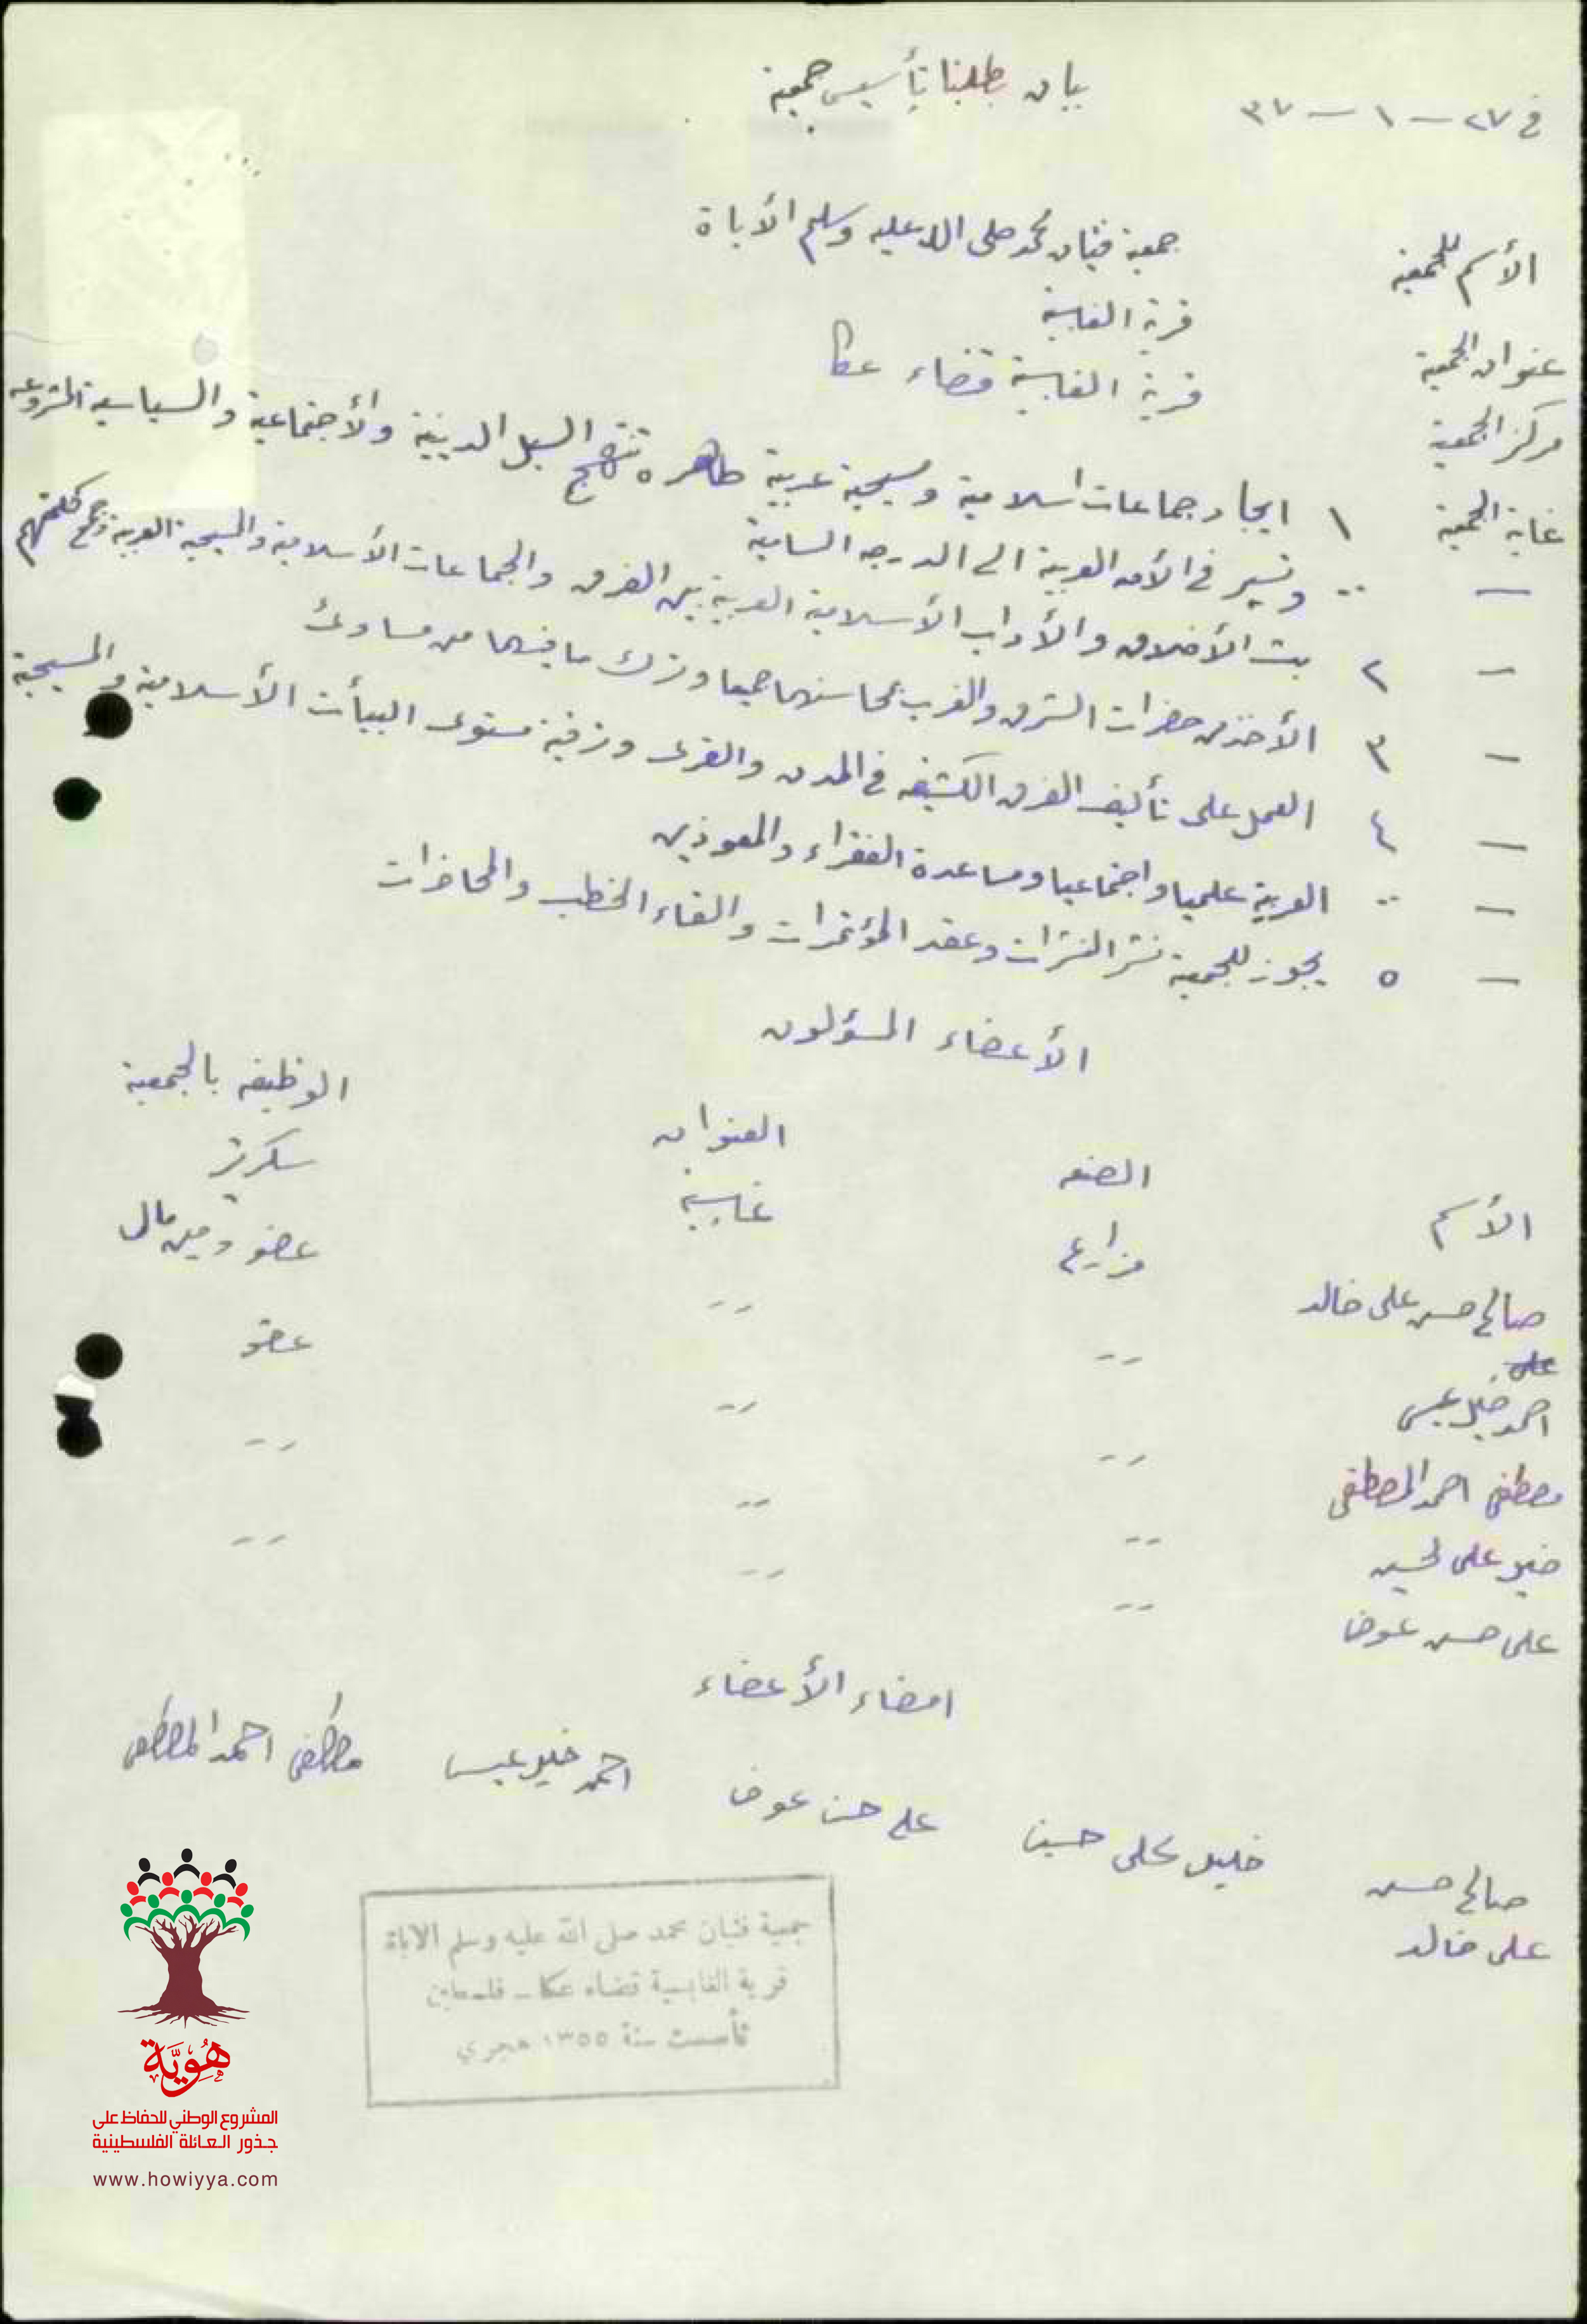 بيان بطلبنا تأسيس جمعية
في ٢٧ - ١ - ٣٧
الأسم للجمعية جمعية فتيان محمد صلى الله عليه وسلم الأباة
عنوان الجمعية قرية الغابسية
مركز الجمعية قرية الغابسية قضاء عكا
غاية الجمعية ١ ايجاد جماعات اسلامية ومسيحية عربية طاهره تنتهج السبل الدينية والأجتماعية والسياسية المشروعه
— ٠٠ وتسير في الأمه العربية الى الدرجه السامية
— ٢ بث الأخلاق والأداب الأسلامية العربية بين الفرق والجماعات الأسلامية والمسيحية العربية وجمع كلمتهم
— ٣ الأخذ من حضرات الشرق والغرب بمحاسنهما جميعا وترك ما فيهما من مساوئ
— ٤ العمل على تأليف الفرق الكشفيه في المدن والقرى وترقية مستوى البيأت الأسلامية والمسيحية
— ٠٠ العربية علميا واجتماعيا ومساعدة الفقراء والمعوذين
— ٥ يجوز للجمعية نشر النشرات وعقد المؤتمرات والقاء الخطب والمحاضرات
الأعضاء المسؤلون
الأسم الصنعه العنوان الوظيفه بالجمعية
صالح حسن على خالد مزارع غابسية سكرتير
على
احمد خليل عيسى ,, ,, عضو ومين مالى
مصطفى احمد المصطفى ,, ,, عضو
خليل على لحسين ,, ,, ,,
على حسن عوض ,, ,, ,,
امضاء الأعضاء
صالح حسن على خالد خليل على حسين على حسن عوض احمد خليل عيسى مصطفى احمد المصطفى
جمعية فتيان محمد صلى الله عليه وسلم الاباة
قرية الغابسية قضاء عكا - فلسطين
تأسست سنة ١٣٥٥ هجري
هُوِيَّة
المشروع الوطني للحفاظ على
جذور العائلة الفلسطينية
www.howiyya.com